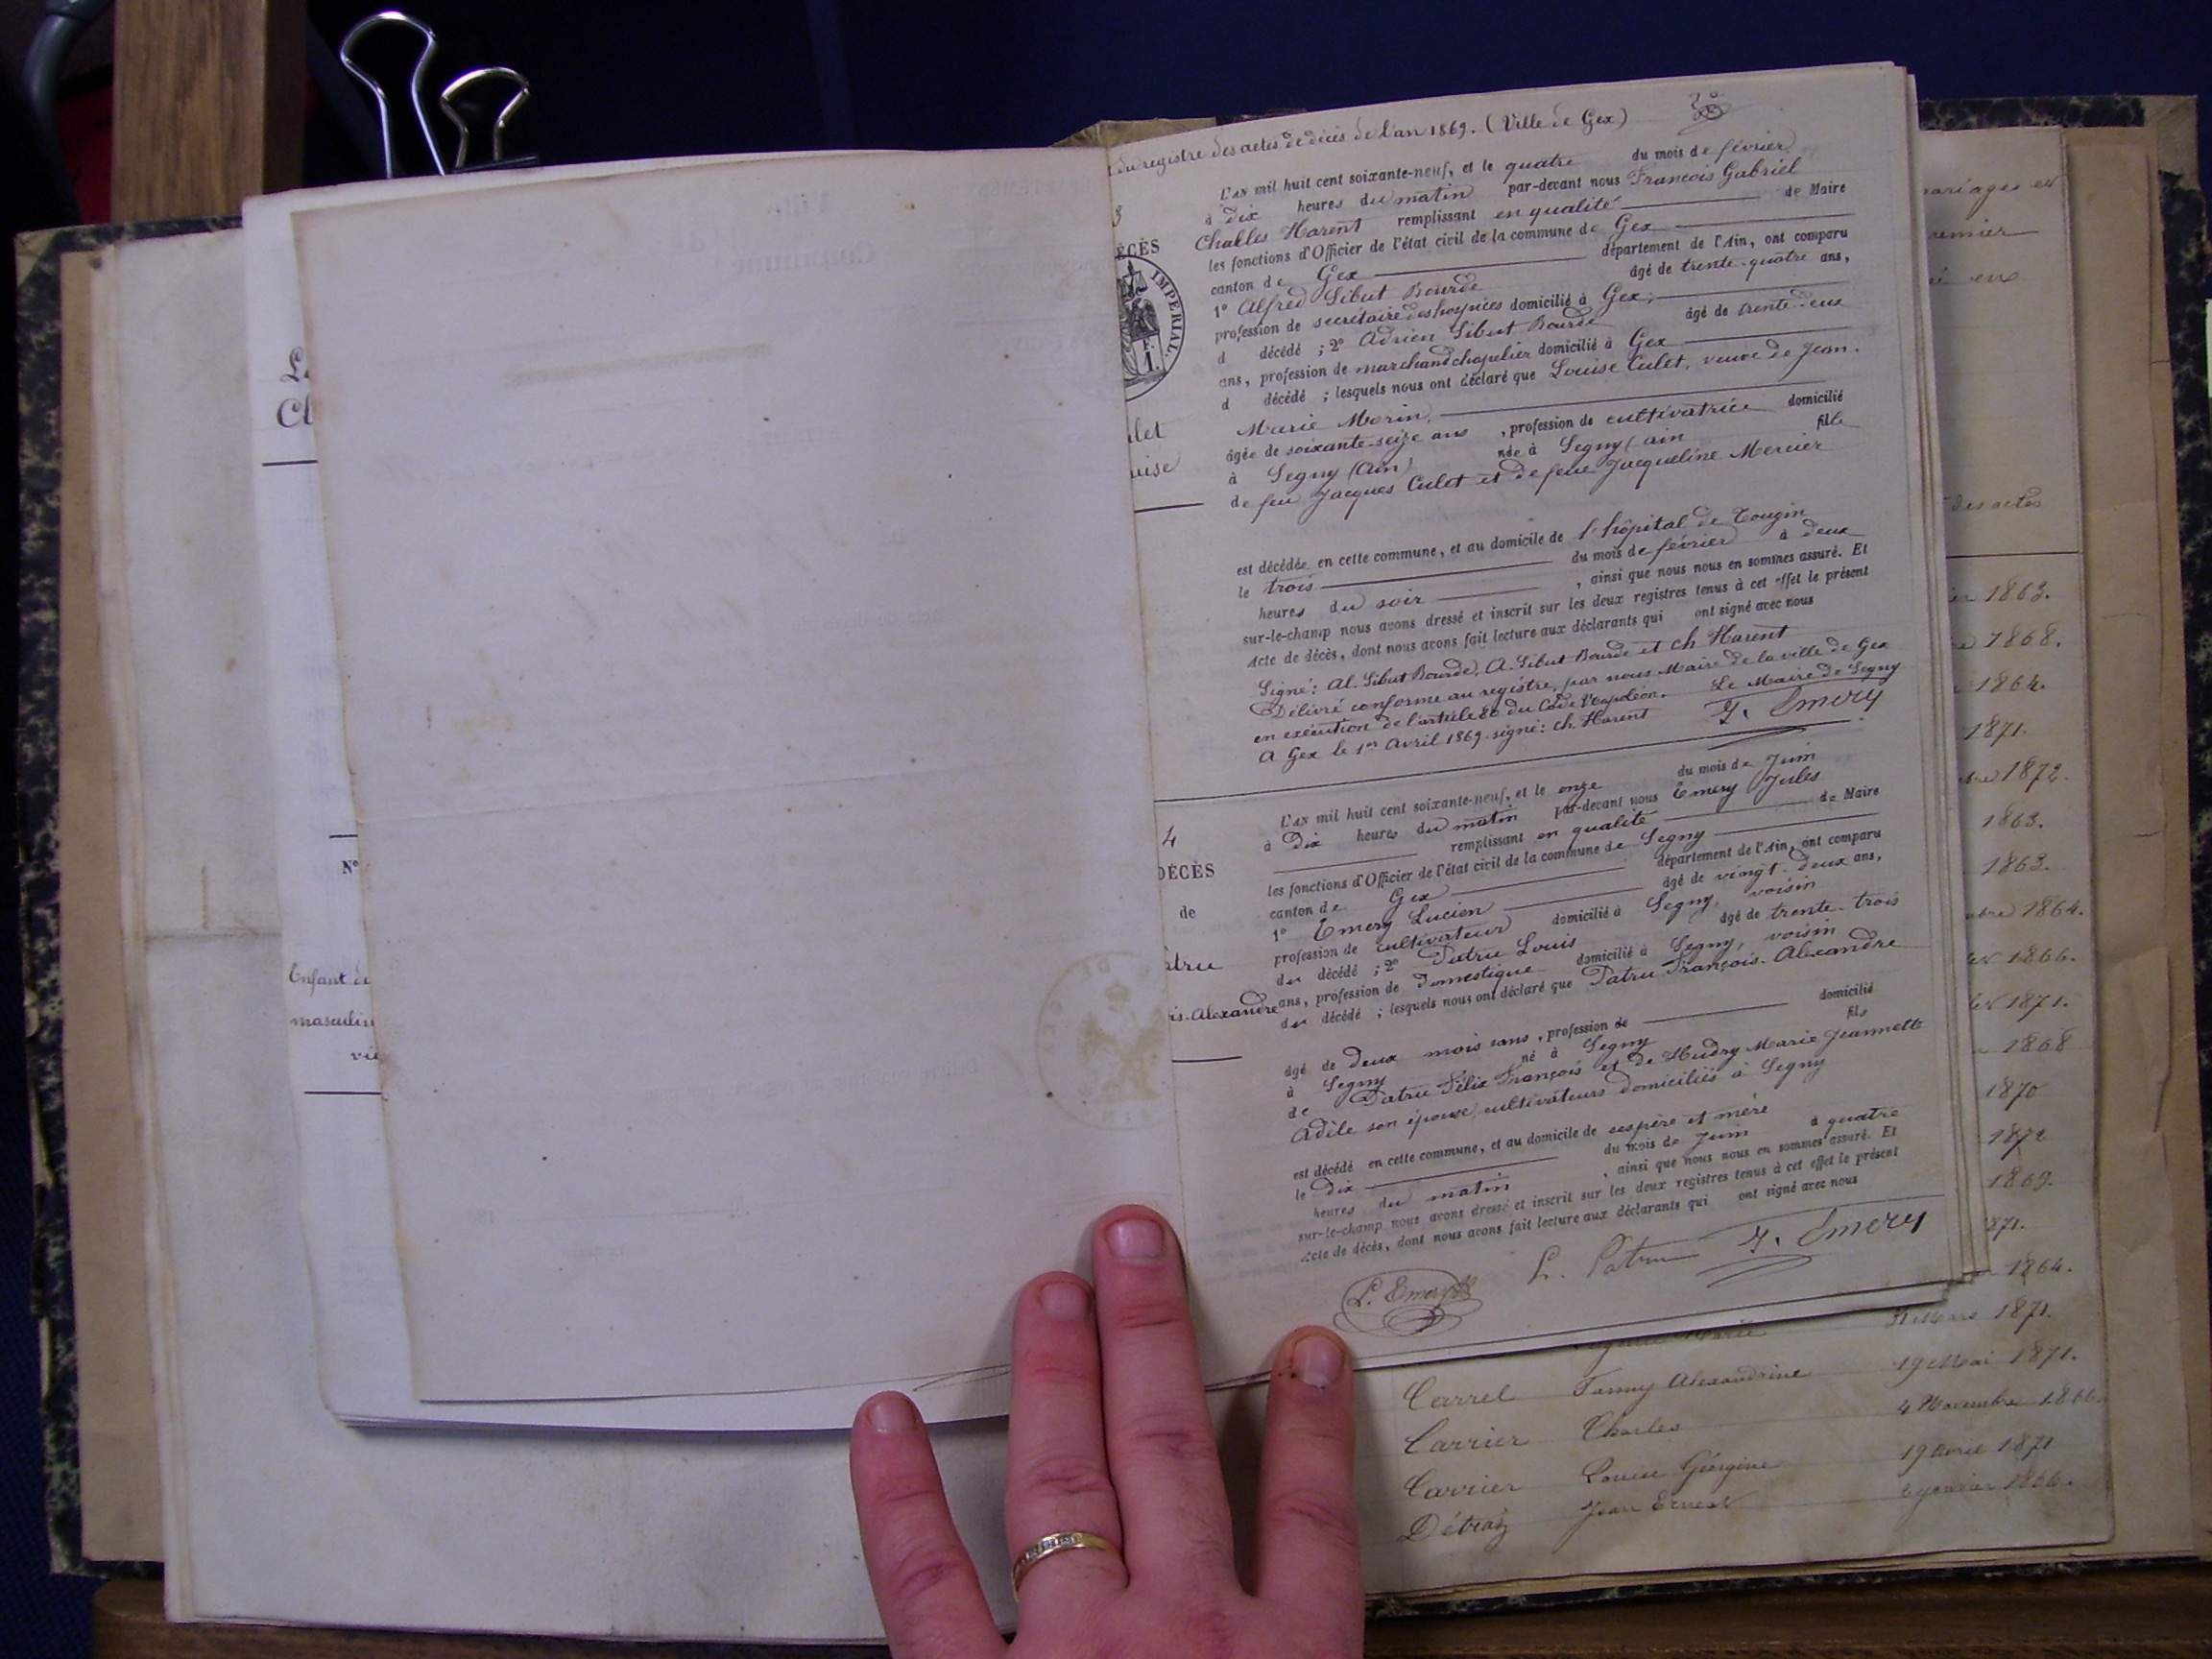 du registre des actes de décès de l'an 1869. (Ville de Gex)
3
DÉCÈS
IMPÉRIAL.
F.
1.
let
uise
L'AN mil huit cent soixante-neuf, et le quatre du mois de février
à dix heures du matin par-devant nous François Gabriel
Charles Harent remplissant en qualité de Maire
les fonctions d'Officier de l'état civil de la commune de Gex
canton de Gex département de l'Ain, ont comparu
1° Alfred Sibut Bourde âgé de trente-quatre ans,
profession de secrétaire des hospices domicilié à Gex;
d décédé ; 2° Adrien Sibut Bourde âgé de trente deux
ans, profession de marchand chapelier domicilié à Gex
d décédé ; lesquels nous ont déclaré que Louise Culet, veuve de Jean-
Marie Morin,
âgée de soixante-seize ans , profession de cultivatrice domicilié
à Segny (Ain) née à Segny (ain fille
de feu Jacques Culet et de feue Jacqueline Mercier
est décédée en cette commune, et au domicile de l'hôpital de Tougin
le trois du mois de février à deux
heures du soir , ainsi que nous nous en sommes assuré. Et
sur-le-champ nous avons dressé et inscrit sur les deux registres tenus à cet effet le présent
Acte de décès, dont nous avons fait lecture aux déclarants qui ont signé avec nous
Signé: Al. Sibut Bourde, A. Sibut Bourde et Ch Harent
Délivré conforme au registre, par nous Maire de la ville de Gex
en exécution de l'article 80 du Code Napoléon. Le Maire de Segny
A Gex le 1er Avril 1869 signé: Ch. Harent J. Emery
4
DÉCÈS
de
atru
is-Alexandre
L'AN mil huit cent soixante-neuf, et le onze du mois de Juin
à Dix heures du matin par-devant nous Emery Jules
remplissant en qualité de Maire
les fonctions d'Officier de l'état civil de la commune de Segny
canton de Gex département de l'Ain, ont comparu
1° Emery Lucien âgé de vingt-deux ans,
profession de cultivateur domicilié à Segny, voisin
du décédé ; 2° Patru Louis âgé de trente-trois
ans, profession de Domestique domicilié à Segny, voisin
du décédé ; lesquels nous ont déclaré que Patru François-Alexandre
âgé de Deux mois ans , profession de domicilié
à Segny né à Segny fils
de Patru Félix François et de Mudry Marie Jeannette
Adèle son épouse, cultivateurs domiciliés à Segny
est décédé en cette commune, et au domicile de ses père et mère
le Dix du mois de Juin à quatre
heures du matin , ainsi que nous nous en sommes assuré. Et
sur-le-champ nous avons dressé et inscrit sur les deux registres tenus à cet effet le présent
Acte de décès, dont nous avons fait lecture aux déclarants qui ont signé avec nous
L. Emery L. Patru J. Emery
N°
Enfant de
masculin
mariages et
des actes
1863.
1868.
1864.
1871.
1872.
1863.
1863.
1864.
1866.
1871.
1868
1870
1872
1869.
871.
1864.
1871.
Carrel Fanny Alexandrine 19 Mai 1871.
Carrier Charles 4 Novembre 1866.
Carrier Louise Géorgine 19 Avril 1871
Détraz Jean Ernest 6 janvier 1866.